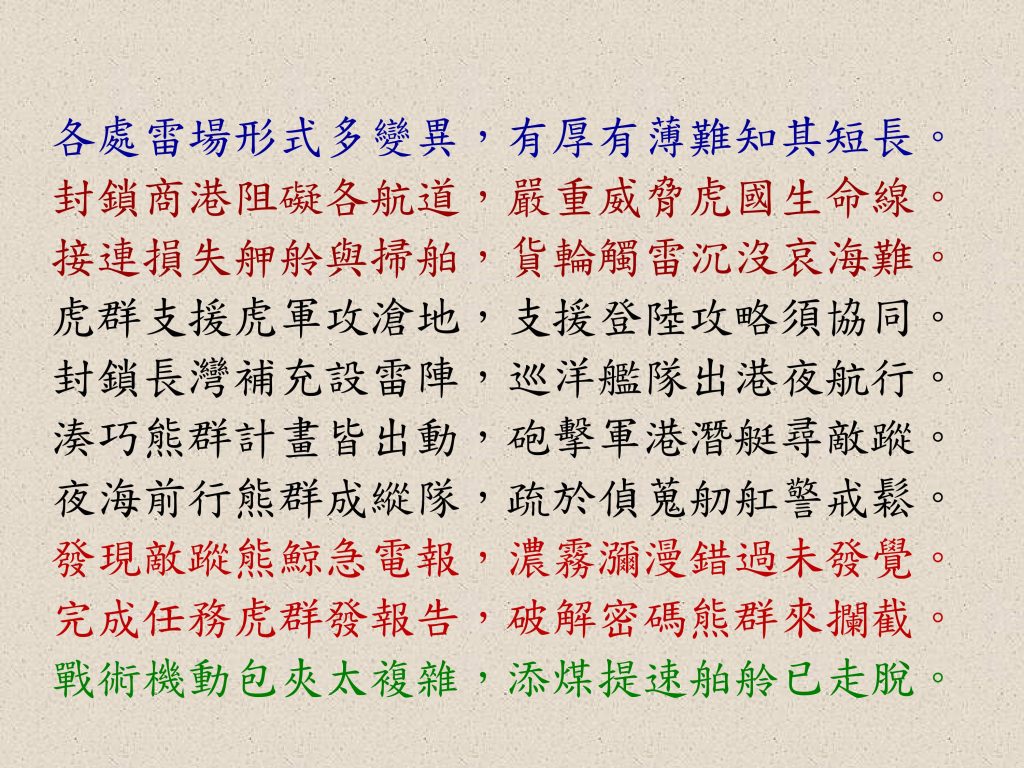 各處雷場形式多變異，有厚有薄難知其短長。
封鎖商港阻礙各航道，嚴重威脅虎國生命線。
接連損失舺舲與掃舶，貨輪觸雷沉沒哀海難。
虎群支援虎軍攻滄地，支援登陸攻略須協同。
封鎖長灣補充設雷陣，巡洋艦隊出港夜航行。
湊巧熊群計畫皆出動，砲擊軍港潛艇尋敵蹤。
夜海前行熊群成縱隊，疏於偵蒐舠舡警戒鬆。
發現敵蹤熊鯨急電報，濃霧瀰漫錯過未發覺。
完成任務虎群發報告，破解密碼熊群來攔截。
戰術機動包夾太複雜，添煤提速舶舲已走脫。